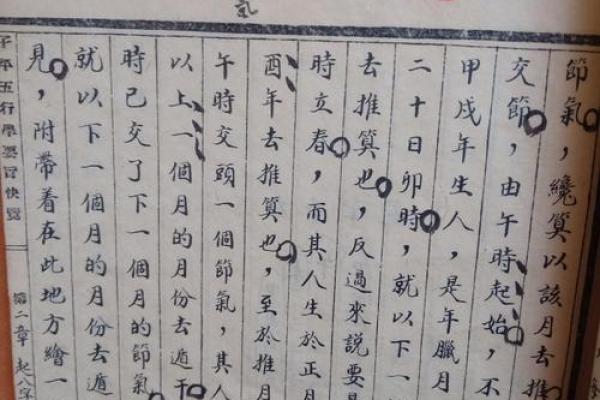 氣
節氣，纔算以該月去推
交節，由午時起始，不
甲戌年生人，是年臘月
二十日卯時，就以下一
去推算也，反過來說要
時立春，而其人生於正月
酉年去推算也，至於推月
午時交頭一個節氣，其人
以上一個月的月份去遁干
時已交了下一個月的節氣
就以下一個月的月份去遁
見，附帶着在此地方繪一
子平五行學要旨快覽
第二章 起八字